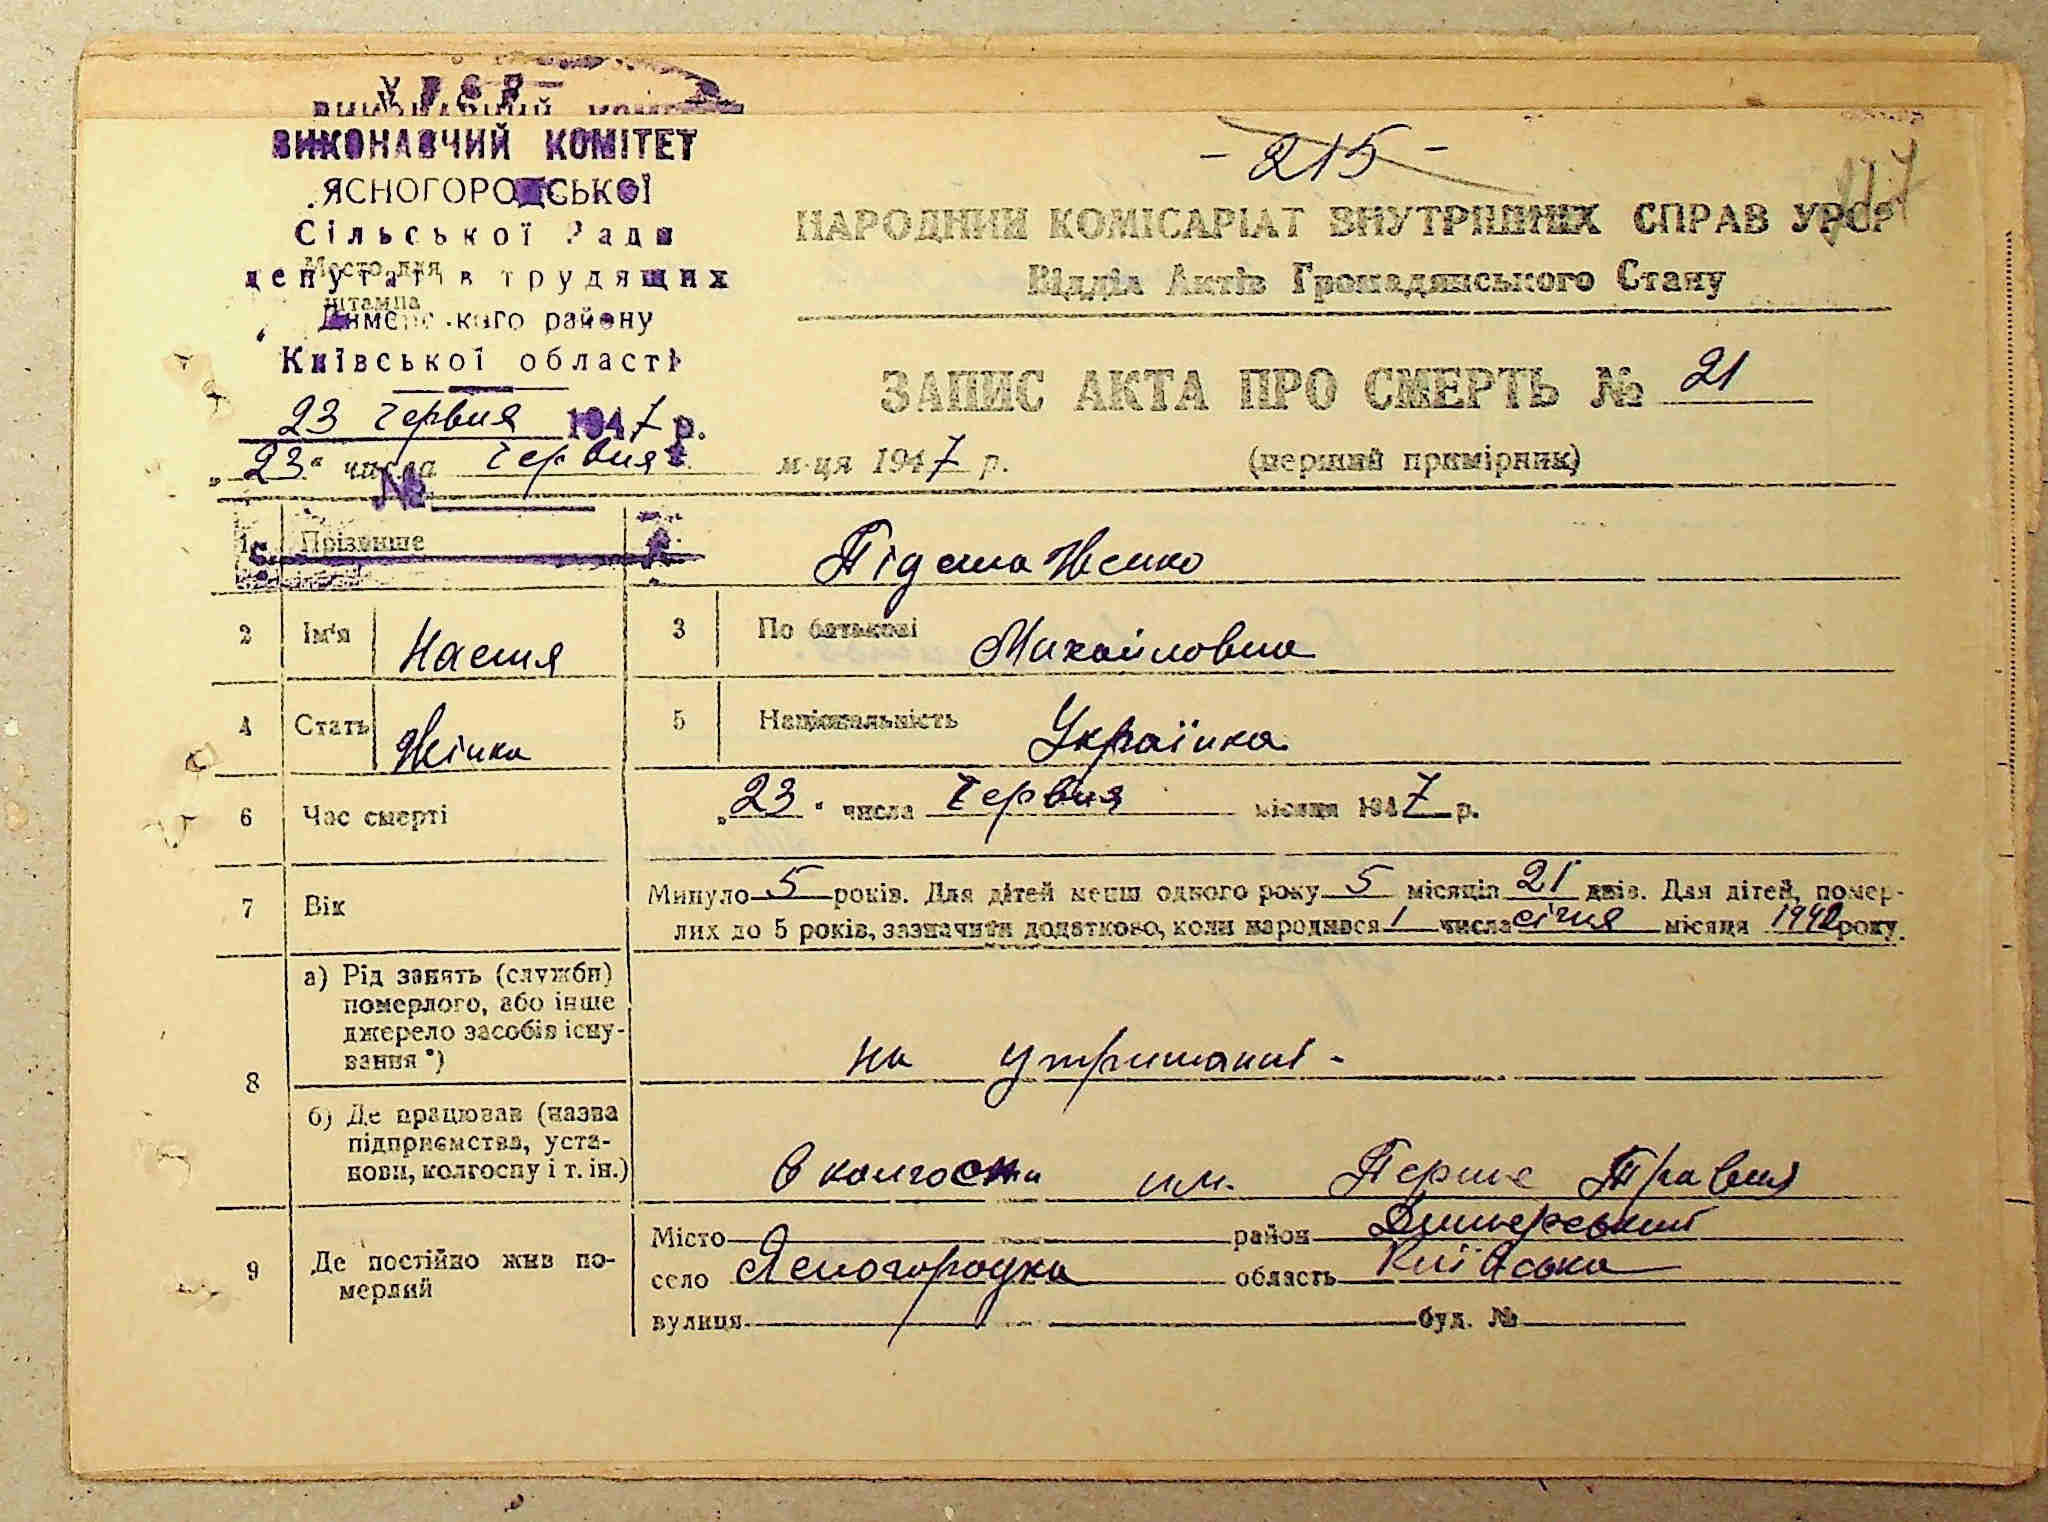 УРСР
ВИКОНАВЧИЙ КОМІТЕТ
ЯСНОГОРОДСЬКОЇ
Сільської Ради
депутатів трудящих
Место для
штампа
Димерського району
Київської області
23 червня 1947 р.
„23“ числа червня м-ця 1947 р.
№
- 215 -
НАРОДНИЙ КОМІСАРІАТ ВНУТРІШНІХ СПРАВ УРСР
Відділ Актів Громадянського Стану
ЗАПИС АКТА ПРО СМЕРТЬ № 21
(перший примірник)
1 Прізвище Підсшаженко
2 Ім'я Настя 3 По батькові Михайловна
4 Стать Жінка 5 Національність Українка
6 Час смерті „23“ числа червня місяця 1947 р.
7 Вік Минуло 5 років. Для дітей менш одного року 5 місяців 21 днів. Для дітей, помер-
лих до 5 років, зазначити додатково, коли народився 1 числа січня місяця 1942 року.
8 а) Рід занять (служби)
померлого, або інше
джерело засобів існу-
вання*) на утриманні -
б) Де працював (назва
підприємства, уста-
нови, колгоспу і т. ін.) в колгоспи им. Перше Травня
9 Де постійно жив по-
мерлий
Місто район Димерський
село Ясногородка область Київська
вулиця буд. №